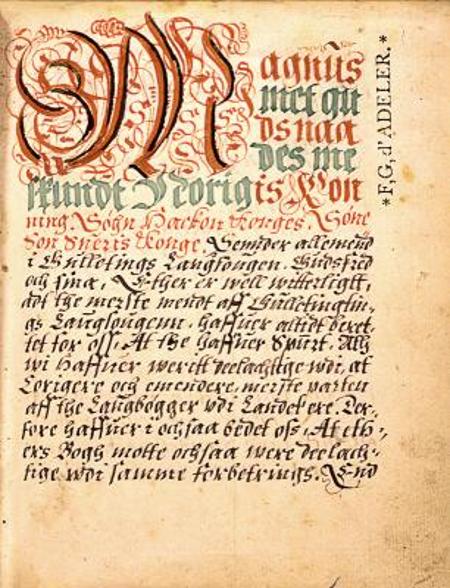 Magnus
met gu
ds naa
des me
skundt Norigis Kon
ning. Søgn Hackon Konges. Søne
Søn Sueris Konge. Sennder allemend
i Gullotings Laugsougen. Gudsfred
och sina, Ether er well witterligtt,
adt the merste mendt aff Gulletingtin-
gs Laugsougenn. haffuer altidt beret-
tet for oss, At the haffuer Spurt. Alh
wi haffuer weritt deelachtige wdi, at
Corigere och emendere, merste parten
aff the Laugbøgger wdi Landet ere. Der-
fore haffuer i ochsaa bedet oss, At eth-
ers Bogh motte ochsaa were deelach-
tige wdi samme forbetrings. End
*F,G, d'ADELER.*